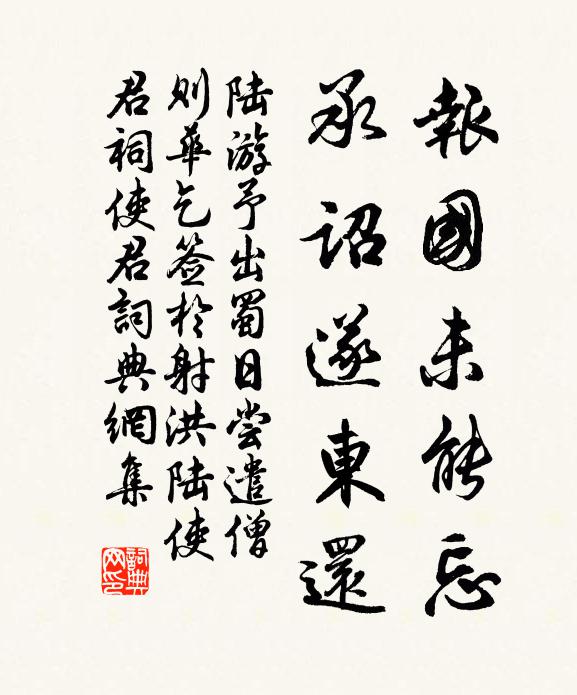 報國未能忘
承詔遂東還
陸游予出蜀日嘗遣僧
則華乞签於射洪陸使
君祠使君詞典網集
詞典
网印